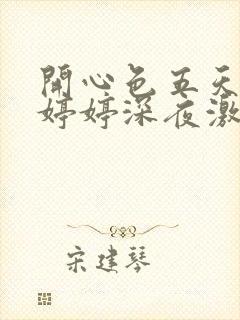 開心色五天
婷婷深夜激
宋建琴